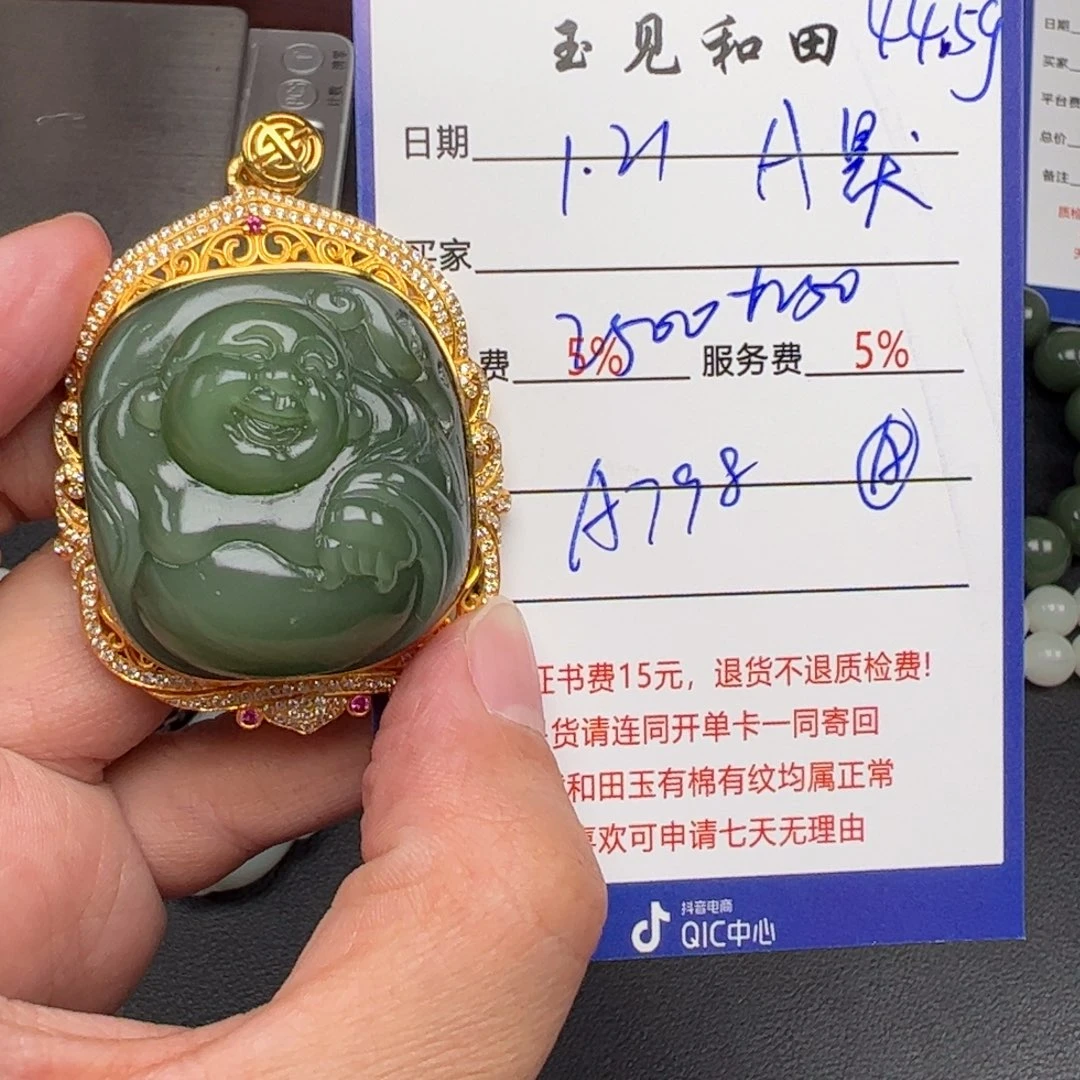 玉见和田 44.5g
日期 1.21 A
买家
费 5% 3500+1250 服务费 5%
A798 A
证书费15元，退货不退质检费!
货请连同开单卡一同寄回
和田玉有棉有纹均属正常
喜欢可申请七天无理由
抖音电商
QIC中心
日期
买家
平台费
总价
备注
质检